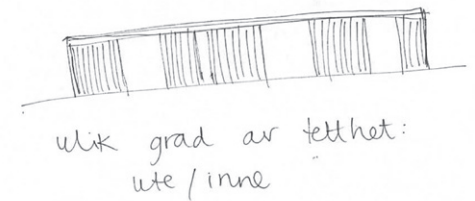 ulik grad av tetthet:
ute / inne